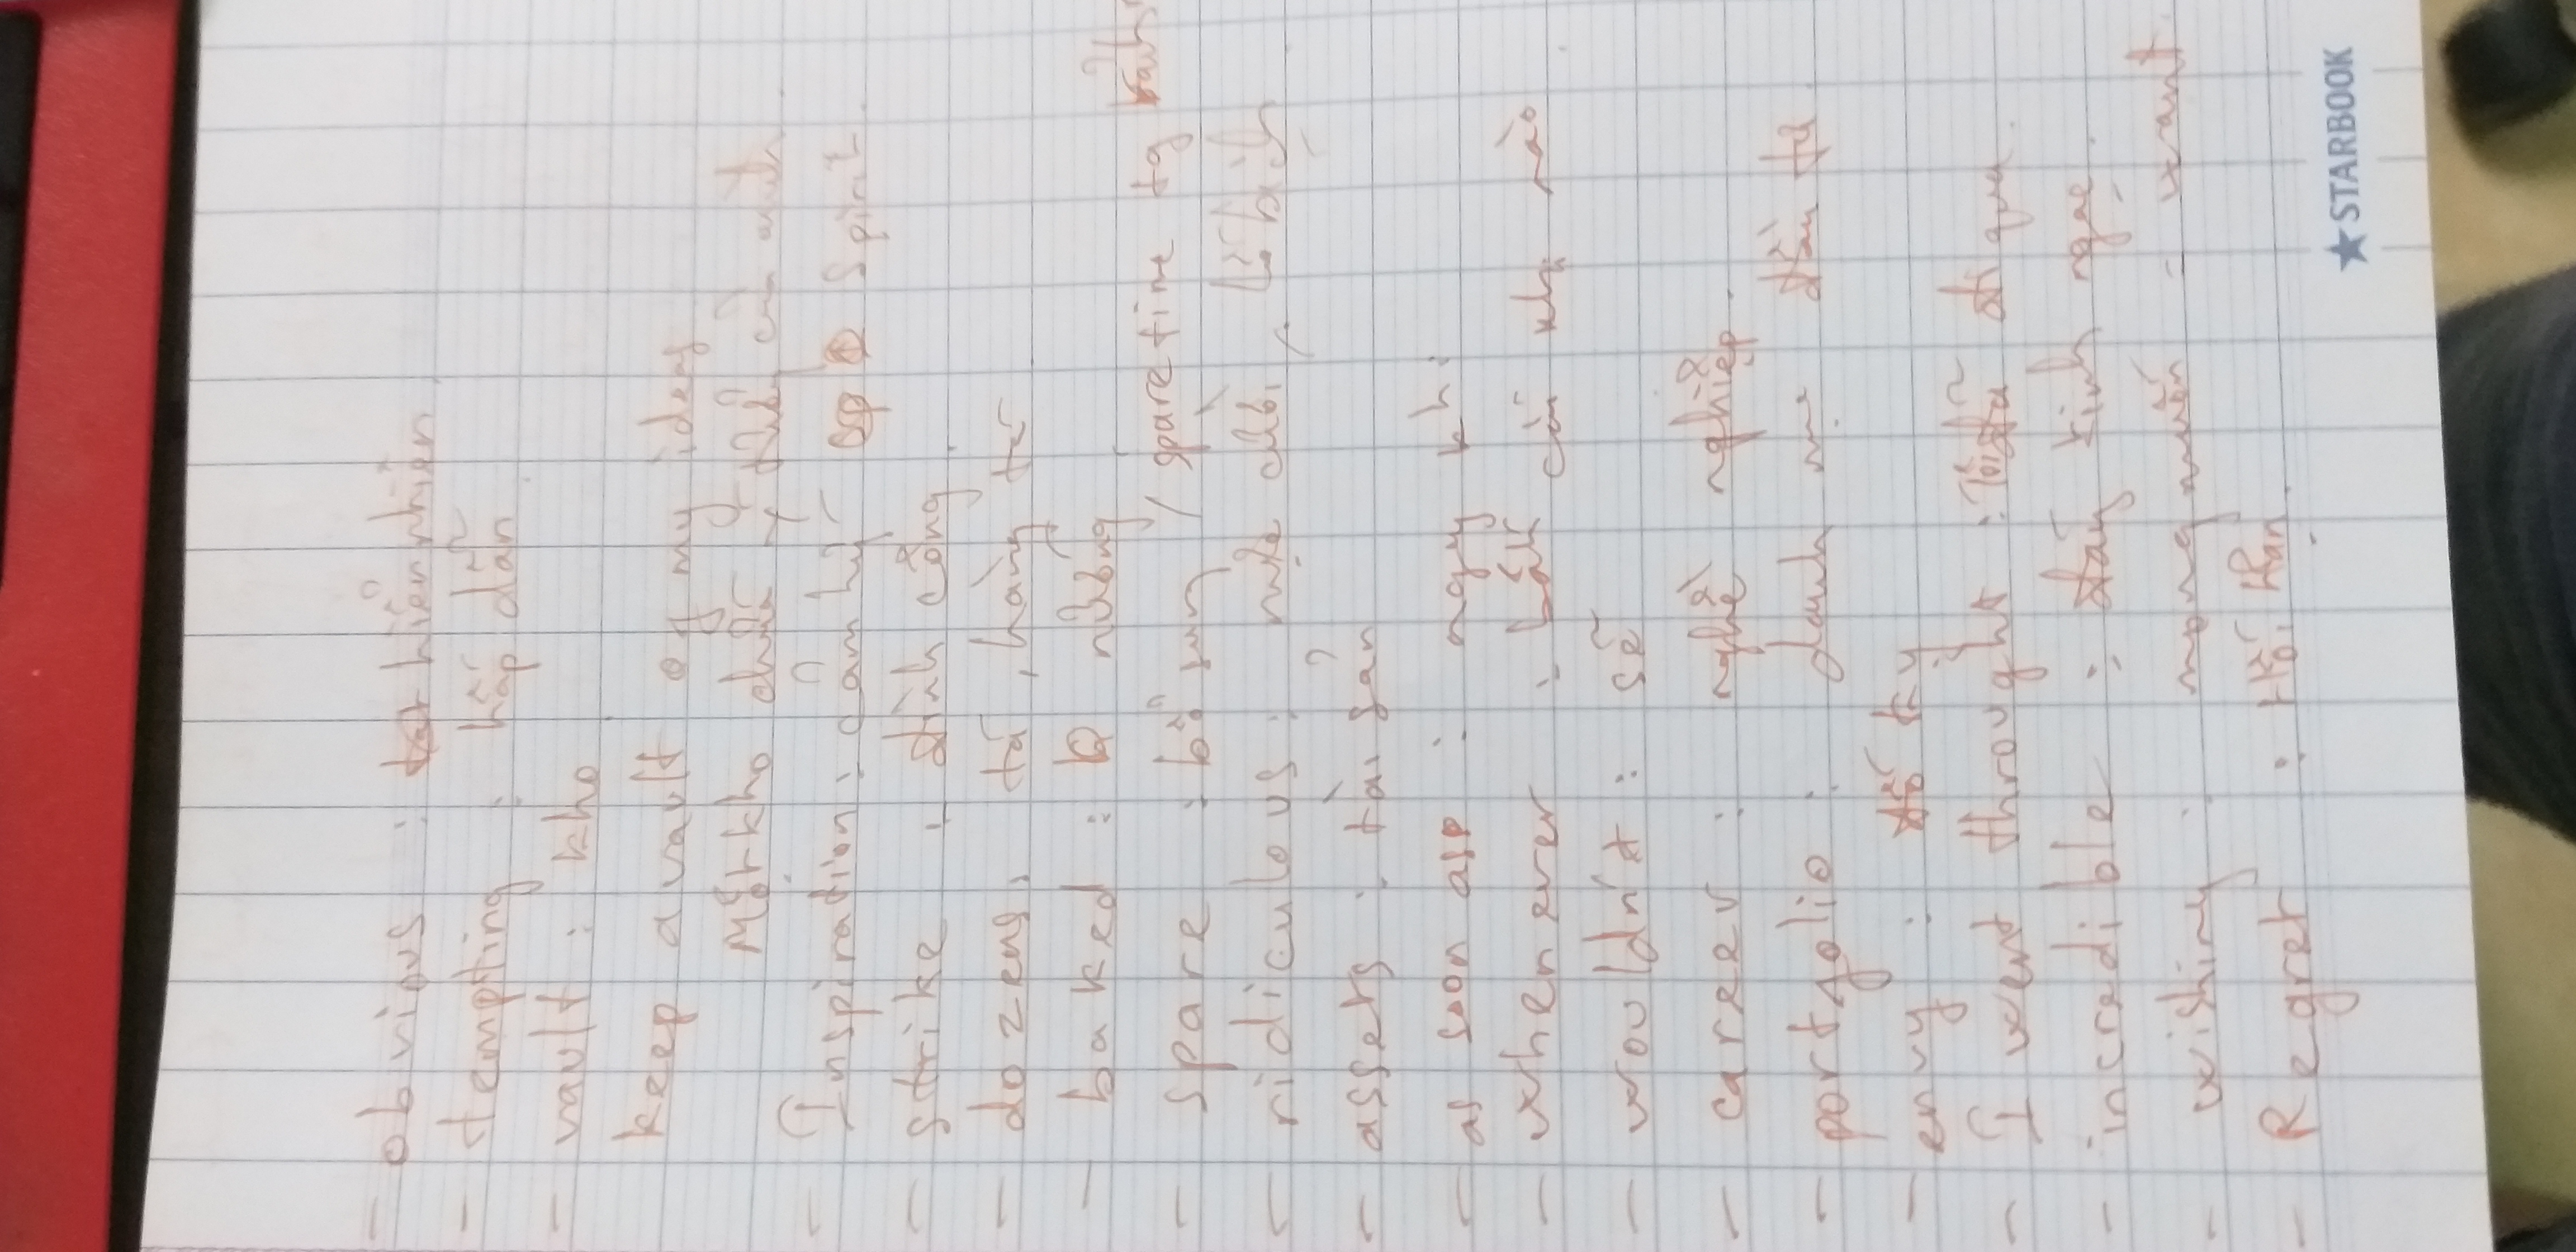 - obvious : hiển nhiên
- tempting : hấp dẫn
- vault : kho
keep a vault of my ideas
Một kho chứa ý tưởng của mình
- Inspiration : cảm hứng Spirit
- strike : đình công
- dozens, tá, hàng tá
- baked : nướng
- spare : bổ sung / spare time tg rảnh
- ridiculous : nực cười, lố bịch
- assets : tài sản
- as soon as : ngay khi
- Whenever : bất cứ khi nào
- wouldn't : sẽ
- career : nghề nghiệp.
- portfolio : danh mục đầu tư
- envy : đố kỵ
- I went throught : Tôi đã đi qua.
- incredible : đáng kinh ngạc.
- wishing : mong muốn = want
- Regret : Hối Hận.
★STARBOOK